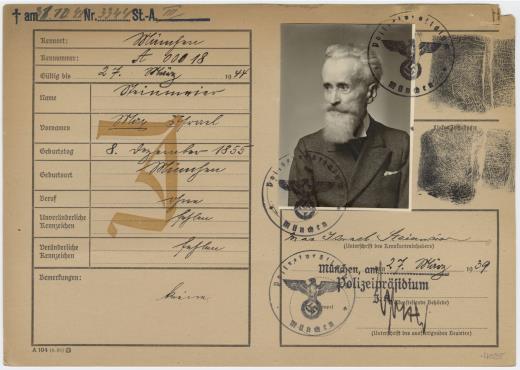 † am 28.10.41 Nr. 3344 St.-A. III
Kennort: München
Kennummer: A 00018
Gültig bis 27. März 1944
Name
Vornamen Max Israel
Geburtstag 8. Dezember 1855
Geburtsort München
Beruf ohne
Unveränderliche Kennzeichen fehlen
Veränderliche Kennzeichen fehlen
Bemerkungen: keine
A 104
J
Polizeipräsidium
München
Max Israel
(Unterschrift des Kennkarteninhabers)
München, am 27. März 1939
Polizeipräsidium
(Ausstellende Behörde)
(Unterschrift des ausfertigenden Beamten)